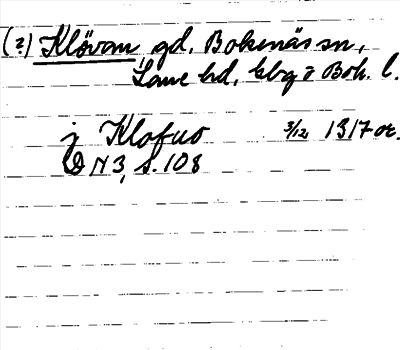 (?) Klövam gd, Bokenäs sn,
Lane hd, Gbg o Boh. l.
j Klofuo 3/12 1317 or.
DN 3, s. 108